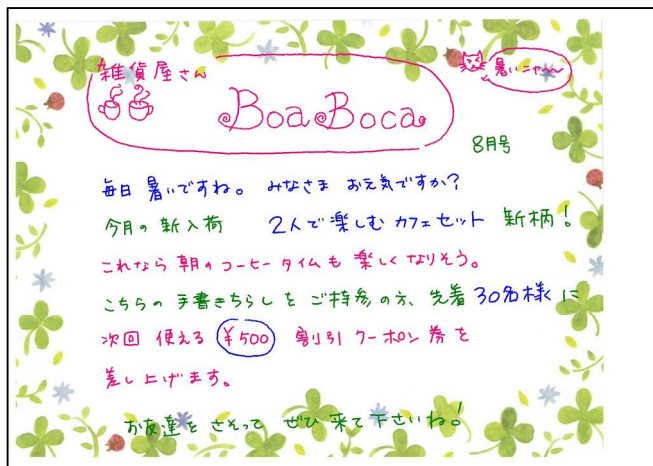 雑貨屋さん
暑いニャ〜〜
Boa Boca
8月号
毎日 暑いですね。 みなさま お元気ですか?
今月の新入荷 2人で楽しむ カフェセット 新柄!
これなら 朝のコーヒータイムも 楽しくなりそう。
こちらの 手書きちらしを ご持参の方、先着 30名様に
次回 使える ¥500 割引クーポン券を
差し上げます。
お友達を さそって ぜひ 来て下さいね!